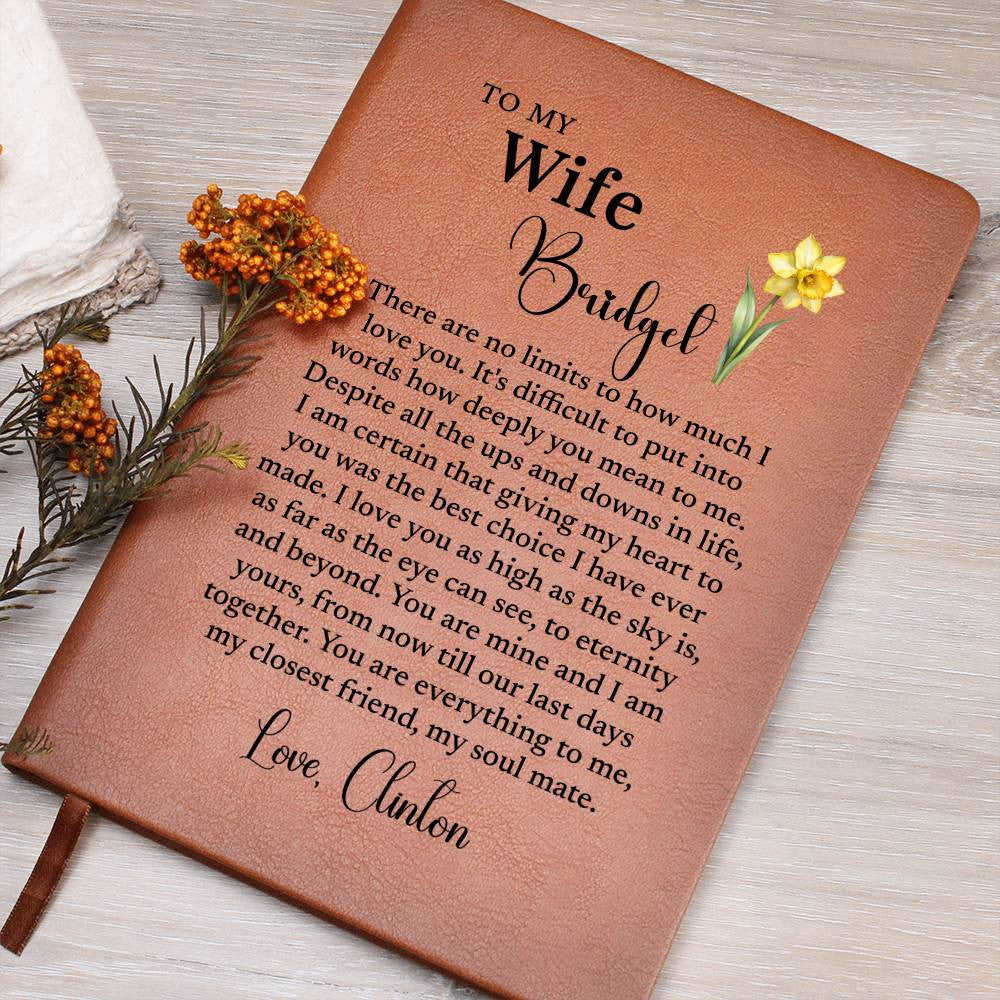 TO MY
Wife
Bridgel
There are no limits to how much I
love you. It's difficult to put into
words how deeply you mean to me.
Despite all the ups and downs in life,
I am certain that giving my heart to
you was the best choice I have ever
made. I love you as high as the sky is,
as far as the eye can see, to eternity
and beyond. You are mine and I am
yours, from now till our last days
together. You are everything to me,
my closest friend, my soul mate.
Love, Clinton